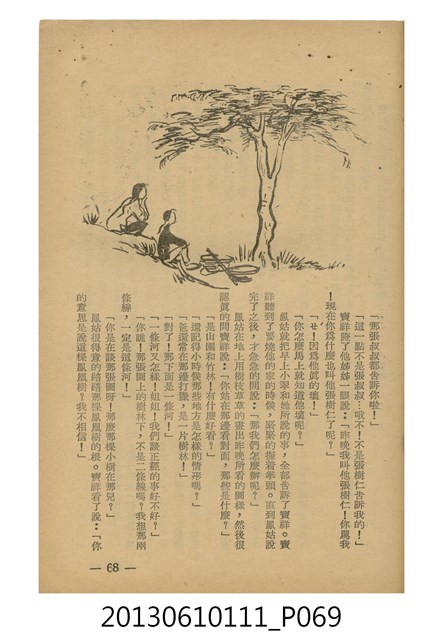 「那張叔叔都告訴你啦！」
「這一點不是張叔叔…哦不！不是張樹仁告訴我的！」
寶祥瞪了他姊姊一眼說：「昨晚我叫他張樹仁！你罵我
！現在你爲什麼也叫他張樹仁了呢？」
「ㄝ！因爲他眞的壞！」
「你怎麼馬上就知道他壞呢？」
鳳姑就把早上小翠和她所說的事，全部告訴了寶祥。寶
祥聽到了要燒他的家的時候，緊緊的握着拳頭。直到鳳姑說
完了之後，才急急的問說：「那我們怎麼辦呢？」
鳳姑在地上用樹枝草草的畫出昨晚所看的圖樣，然後很
認眞的問寶祥說：「你站在那邊看對面，那些是什麼？」
「是山園和竹林！有什麼好看？」
「還記得小時候那些地方是怎樣的情形嗎？」
「爸還常在那邊打獵，是一片樹林！」
「對了！那下面是一條河！」
「一條河又怎樣呢！姐姐！我們談正經的事好不好？」
「你瞧！那張圖上的樹林下，不是二條線嗎？我想那兩
條線，一定是這條河！」
「你是在談那張圖呀！那麼那棵小樹在那兒？」
鳳姑很得意的踏踏那棵鳳凰樹的根。寶祥看了說：「你
的意思是說這棵鳳凰樹？我不相信！」
— 68 —
20130610111_P069